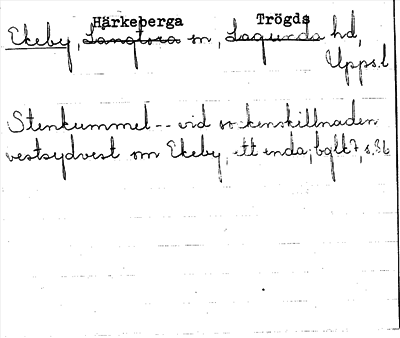 Härkeberga Trögds
Ekeby, Långtora sn, Lagunda hd,
Upps.l
Stenkummel -- vid sockenskillnaden
vestsydvest om Ekeby, ett enda; bglk 7, s. 86